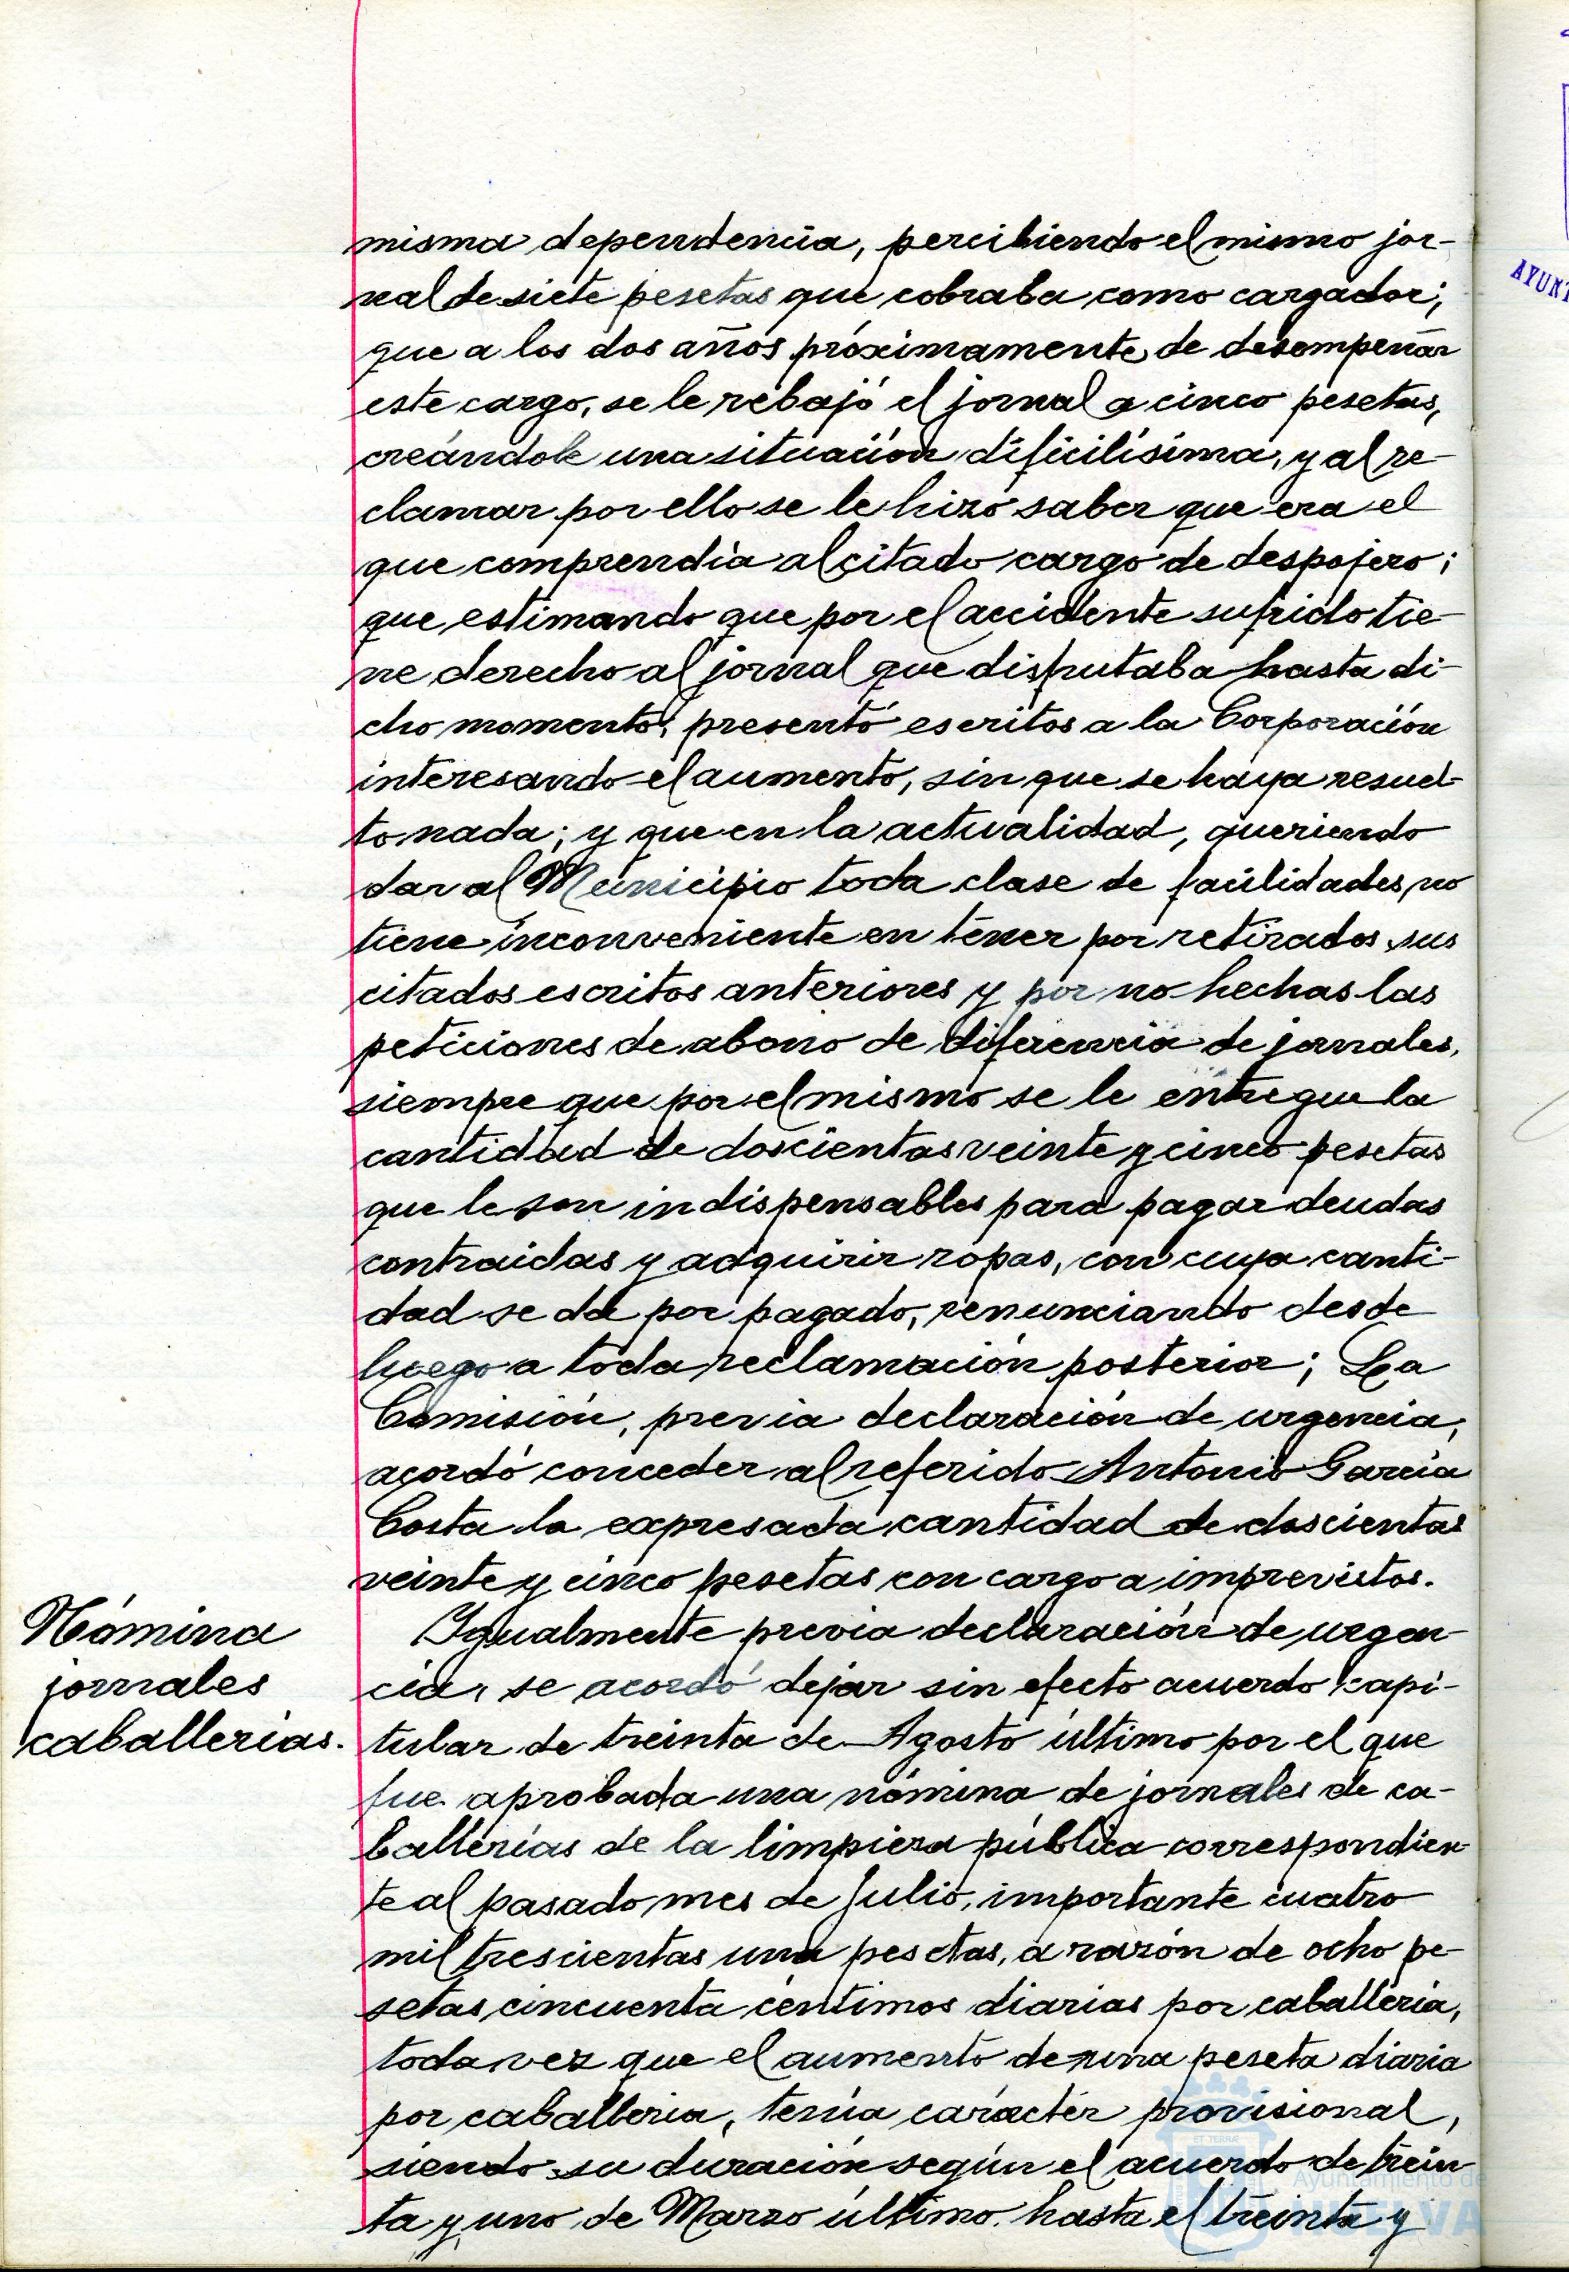 misma dependencia, percibiendo el mismo jor-
nal de siete pesetas que cobraba como cargador;
que a los dos años próximamente de desempeñar
este cargo, se le rebajó el jornal a cinco pesetas,
creándole una situación dificilísima, y al re-
clamar por ello se le hizo saber que era el
que comprendía al citado cargo de despojero;
que estimando que por el accidente sufrido tie-
ne derecho al jornal que disfrutaba hasta di-
cho momento, presentó escritos a la Corporación
interesando el aumento, sin que se haya resuel-
to nada; y que en la actualidad, queriendo
dar al Municipio toda clase de facilidades, no
tiene inconveniente en tener por retirados sus
citados escritos anteriores y por no hechas las
peticiones de abono de diferencia de jornales,
siempre que por el mismo se le entregue la
cantidad de doscientas veinte y cinco pesetas
que le son indispensables para pagar deudas
contraidas y adquirir ropas, con cuya canti-
dad se da por pagado, renunciando desde
luego a toda reclamación posterior; La
Comisión, previa declaración de urgencia,
acordó conceder al referido Antonio García
Costa la expresada cantidad de doscientas
veinte y cinco pesetas con cargo a imprevistos.
Nómina
jornales
caballerías.
Igualmente previa declaración de urgen-
cia, se acordó dejar sin efecto acuerdo capi-
tular de treinta de Agosto último por el que
fue aprobada una nómina de jornales de ca-
ballerías de la limpieza pública correspondien-
te al pasado mes de Julio, importante cuatro
mil trescientas una pesetas, a razón de ocho pe-
setas cincuenta céntimos diarias por caballería,
toda vez que el aumento de una peseta diaria
por caballeria, tenía carácter provisional,
siendo su duración según el acuerdo de trein-
ta y uno de Marzo último hasta el treinta y
AYUNT
ET TERRÆ
Ayuntamiento de
HUELVA